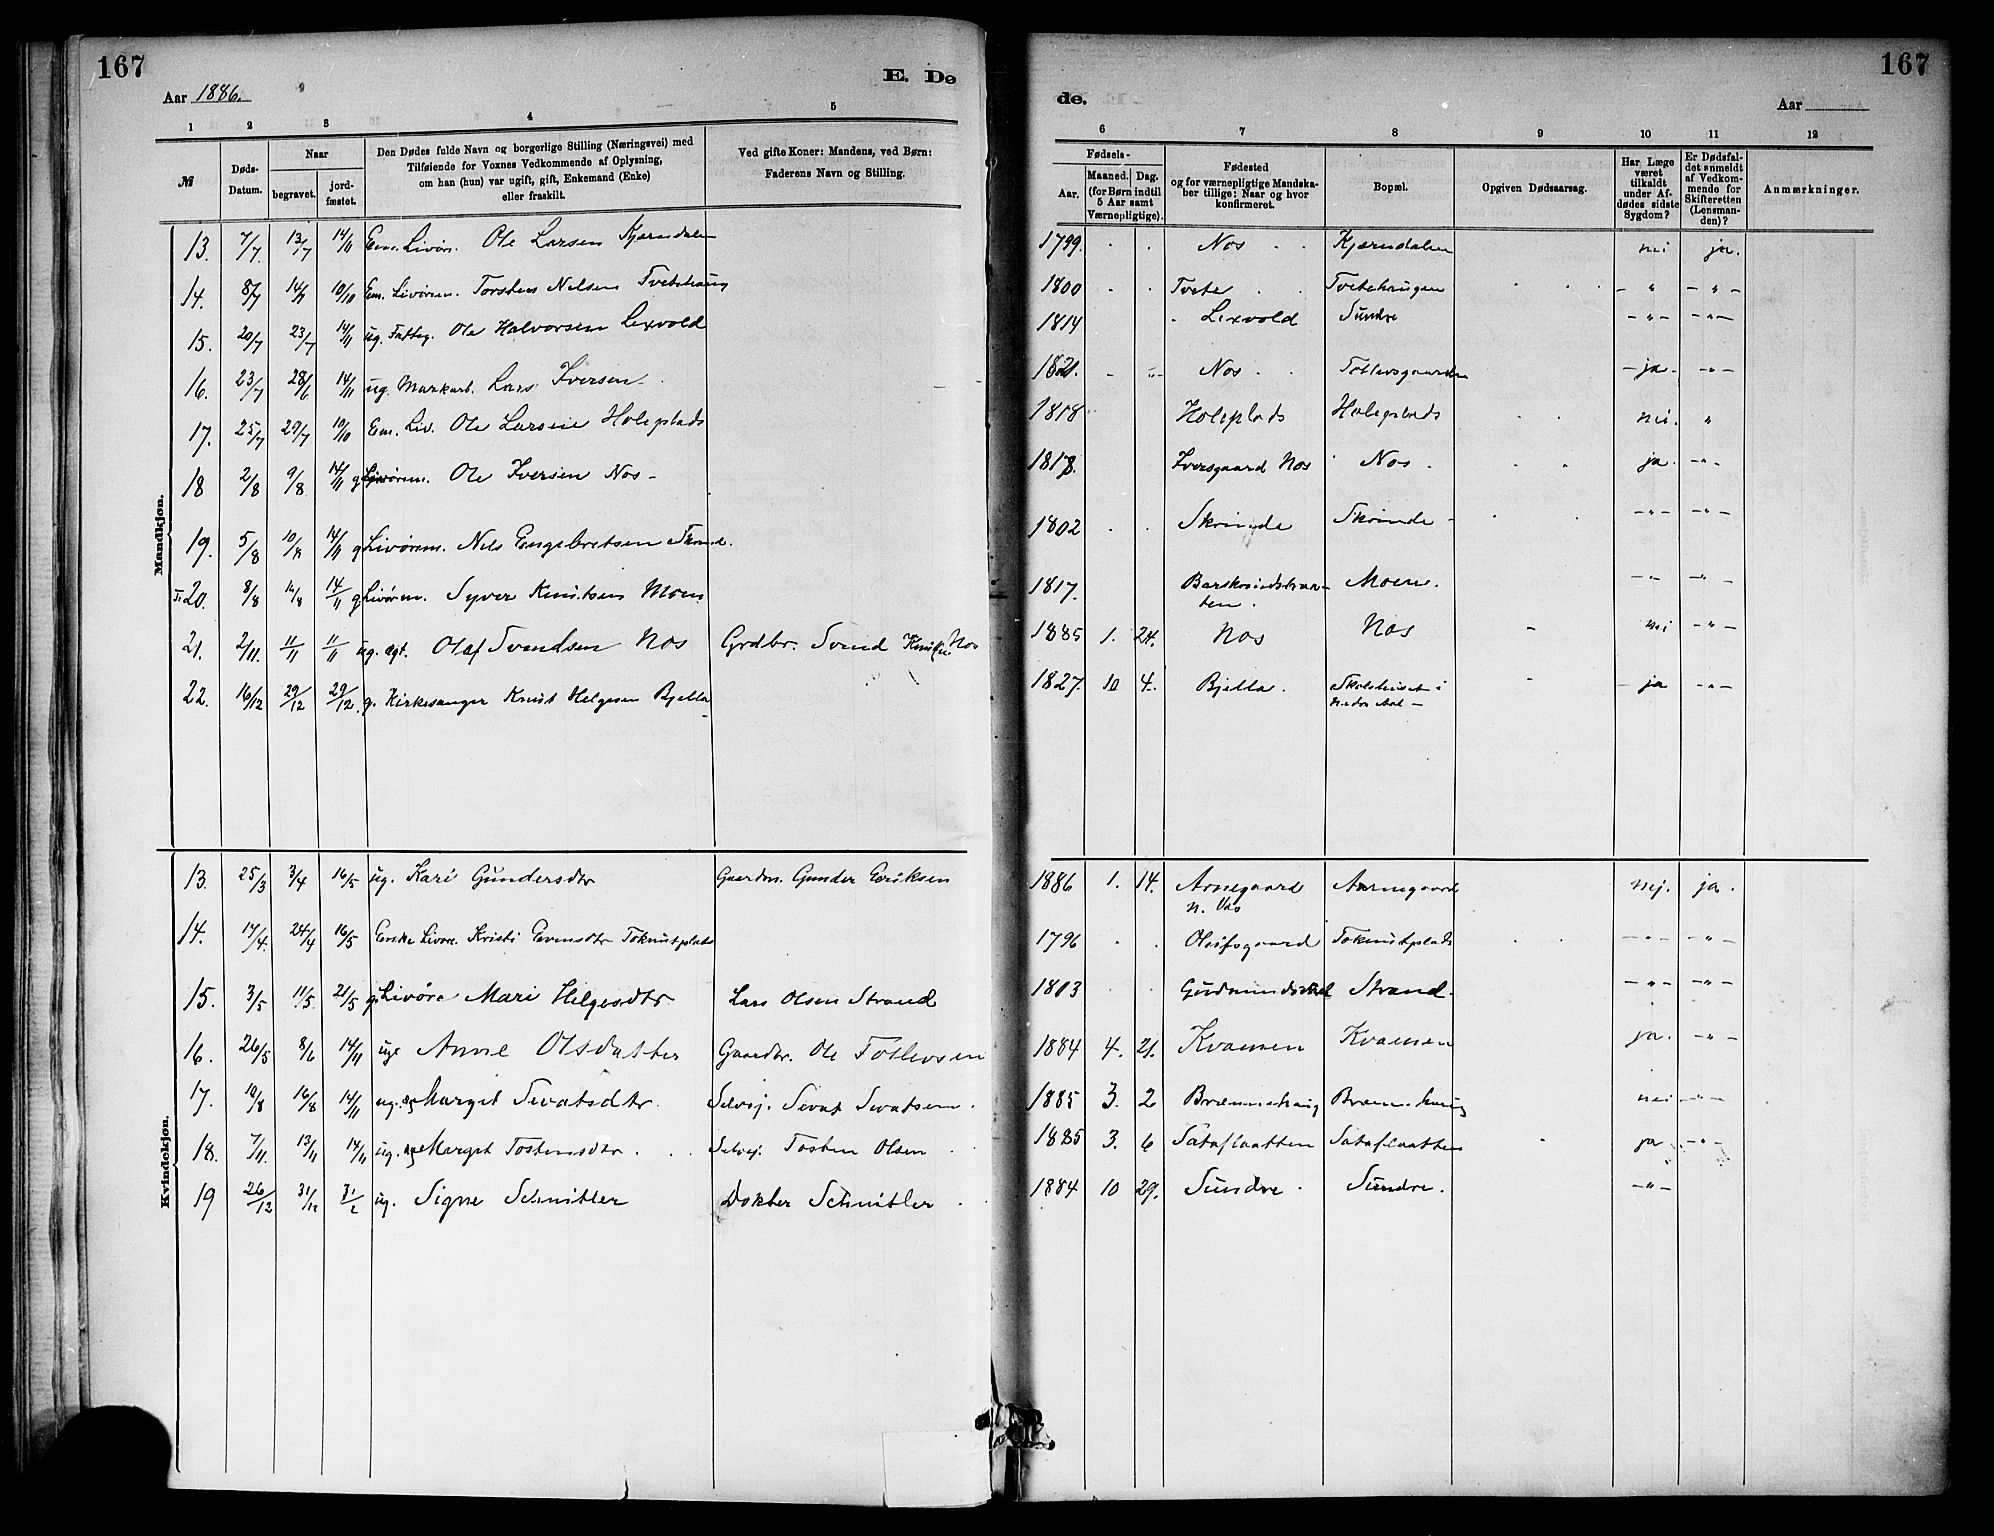 167
Aar 1886.
E. Dø
1 2 3 4 5
№
Døds-Datum.
Naar
begravet.
jord-fæstet.
Den Dødes fulde Navn og borgerlige Stilling (Næringsvei) med
Tilføiende for Voxnes Vedkommende af Oplysning,
om han (hun) var ugift, gift, Enkemand (Enke)
eller fraskilt.
Ved gifte Koner: Mandens, ved Børn:
Faderens Navn og Stilling.
Mandkjøn.
13. 7/7. 13/7 14/11 Em. Livør. Ole Larsen Kjørndalen
14. 8/7 14/7 10/10 Em. Livørem. Torsten Nilsen Tvetehaug
15. 20/7 23/7 14/11 ug. Fattig. Ole Halvorsen Lexvold
16. 23/7 28/6 14/11 ug. Markarb. Lars Iversen
17. 25/7 29/7 10/10 Em. Liv. Ole Larsen Holeplads
18 2/8 9/8 14/11 g. Livørem. Ole Iversen Nos
19. 5/8 10/8 14/11 g. Livørem. Nils Engebretsen
20. 8/8 14/11 g. Livørem. Syver Knutsen Moen
21. 2/11. 11/11 11/11 ug. ægt. Olaf Svendsen Nos Grdbr. Svend Nos
22. 16/12 29/12 29/12. g. Kirkesanger Knut Helgesen Bjella
Kvindekjøn.
13. 25/3 3/4 16/5 ug. Kari Gundersdtr Gaardm. Gunder Eriksen
14. 17/4. 24/4 16/5 Enke Livør. Kristi Evensdtr Toknutplads
15. 3/5 11/5. 21/5 g. Livøre Mari Helgesdtr Lars Olsen Strand
16. 26/5 8/6 14/11 Anne Olsdatter Gaardbr. Ole Tollevsen
17. 10/8 16/8 14/11 ug. Margit Sevatsdtr. Selvej. Sevat Sevatsen.
18. 7/11. 13/11 14/11 ug. Margit Tostensdtr. Selvej. Tosten Olsen
19 26/12 31/12 ug. Signe Schnitler Dokter Schnitler
167
de.
Aar
6 7 8 9 10 11 12
Fødsels-
Aar.
Maaned. Dag.
(for Børn indtil
5 Aar samt
Værnepligtige).
Fødested
og for værnepligtige Mandska-
ber tillige: Naar og hvor
konfirmeret.
Bopæl.
Opgiven Dødsaarsag.
Har Læge
været
tilkaldt
under Af-
dødes sidste
Sygdom?
Er Dødsfal-
det anmeldt
af Vedkom-
mende for
Skifteretten
(Lensman-
den)?
Anmærkninger.
1799. Nos Kjørndalen nei ja.
1800 Tvete Tvetehaugen - " - - " -
1814 Lexvold Sundre - " - - " -
1821. Nos Tollevsgaarden ja. - " -
1818 Holeplads Holeplads nei. "
1818. Iversgaard Nos Nos ja. - " -
1802 Skrinde Skrinde - - " - - " -
1817. Moen. - " - - " -
1885 1. 24. Nos Nos nei - " -
1827. 10 4. Bjella. Skolehuset i ja - " -
nedre Aal
1886 1. 14. Arnegaard Arnegaard nej. ja.
1796 Olufsgaard Toknutplads - " - - " -
1813 Strand. - " - - " -
1884 4. 21. Kvamen Kvamen ja. - " -
1885 3. 2 Brænnehaug Brænnehaug nei - " -
1885 3. 6 Sataslaatten Sataslaatten ja - " -
1884 10 29. Sundre Sundre. - " -